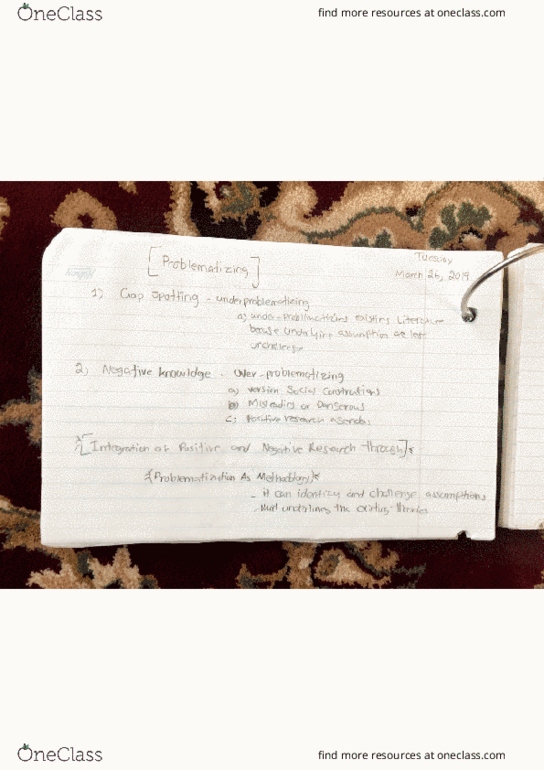 OneClass
find more resources at oneclass.com
Tuesday
[Problematizing]
March 26, 2019
1) Gap Spotting - underproblematizing
a) under-problematizing existing Literature
underlying assumption
2) Negative knowledge - Over-problematizing
a) version Social Constructions
b) Misleading or Dangerous
c) Positive research agendas
*[Integration of Positive and Negative Research through]*
*{Problematization As Methodology}*
- it can identify and challenge assumptions
that underlines the
OneClass
find more resources at oneclass.com